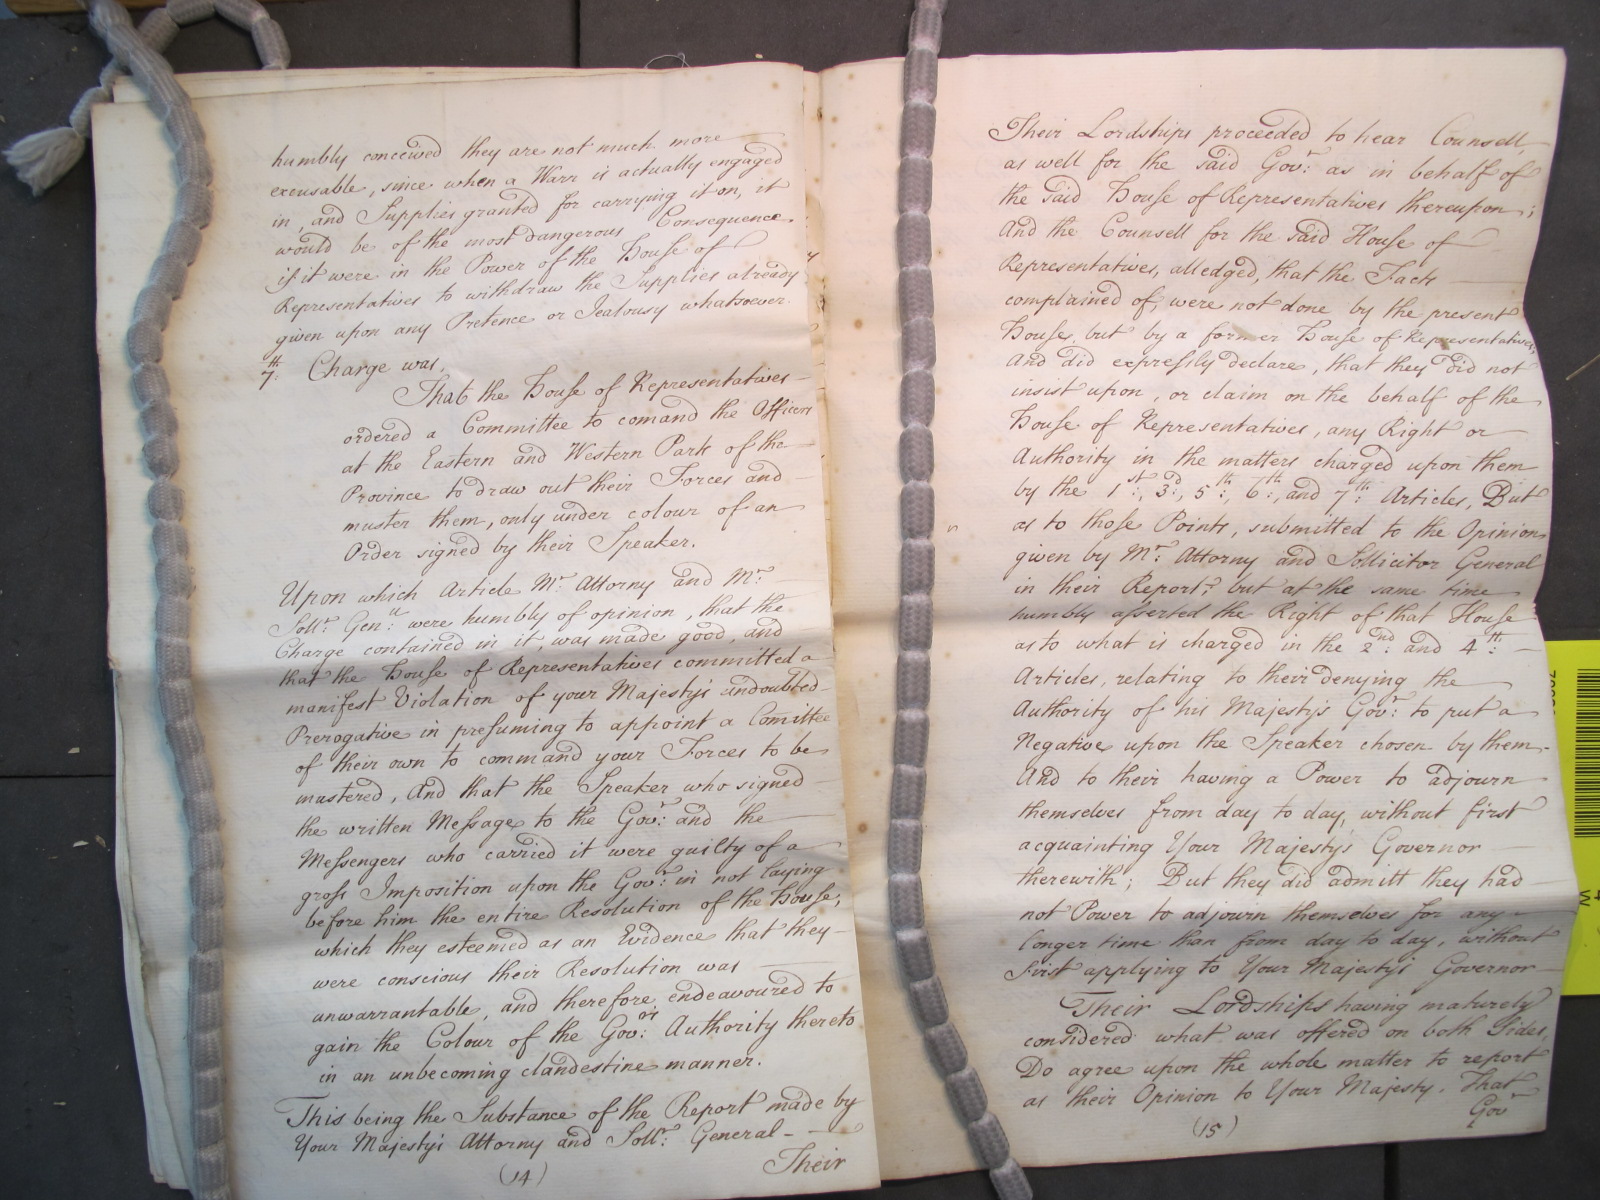 humbly conceived they are not much more
excusable, since when a Warr is actually engaged
in, and Supplies granted for carrying it on, it
would be of the most dangerous Consequence
if it were in the Power of the House of
Representatives to withdraw the Supplies already
given upon any Pretence or Jealousy whatsoever.
7th: Charge was,
That the House of Representatives
ordered a Committee to comand the Officers
at the Eastern and Western Parts of the
Province to draw out their Forces and
muster them, only under colour of an
Order signed by their Speaker.
Upon which Article Mr: Attorny and Mr:
Sollr: Genll: were humbly of opinion, that the
Charge contained in it, was made good, and
that the House of Representatives committed a
manifest Violation of your Majesty's undoubted
Prerogative in presuming to appoint a Comittee
of their own to command your Forces to be
mustered, And that the Speaker who signed
the written Message to the Govr: and the
Messengers who carried it were guilty of a
gross Imposition upon the Govr: in not laying
before him the entire Resolution of the House;
which they esteemed as an Evidence that they
were conscious their Resolution was
unwarrantable, and therefore endeavoured to
gain the Colour of the Govrs: Authority thereto
in an unbecoming clandestine manner.
This being the Substance of the Report made by
Your Majesty's Attorny and Sollr: General
Their
(14)
Their Lordships proceeded to hear Counsell,
as well for the said Govr: as in behalf of
the said House of Representatives thereupon;
And the Counsell for the said House of
Representatives, alledged, that the Facts
complained of, were not done by the present
House, but by a former House of Representatives,
And did expressly declare, that they did not
insist upon, or claim on the behalf of the
House of Representatives, any Right or
Authority in the matters charged upon them
by the 1st:, 3d:, 5th:, 6th:, and 7th: Articles, But
as to those Points, submitted to the Opinion
given by Mr: Attorny and Sollicitor General
in their Report; but at the same time
humbly asserted the Right of that House
as to what is charged in the 2nd: and 4th:
Articles, relating to their denying the
Authority of his Majesty's Govr: to put a
Negative upon the Speaker chosen by them.
And to their having a Power to adjourn
themselves from day to day, without first
acquainting Your Majesty's Governor
therewith; But they did admitt they had
not Power to adjourn themselves for any
longer time than from day to day, without
first applying to Your Majesty's Governor
Their Lordships having maturely
considered what was offered on both Sides,
Do agree upon the whole matter to report
as their Opinion to Your Majesty. That
Govr
(15)